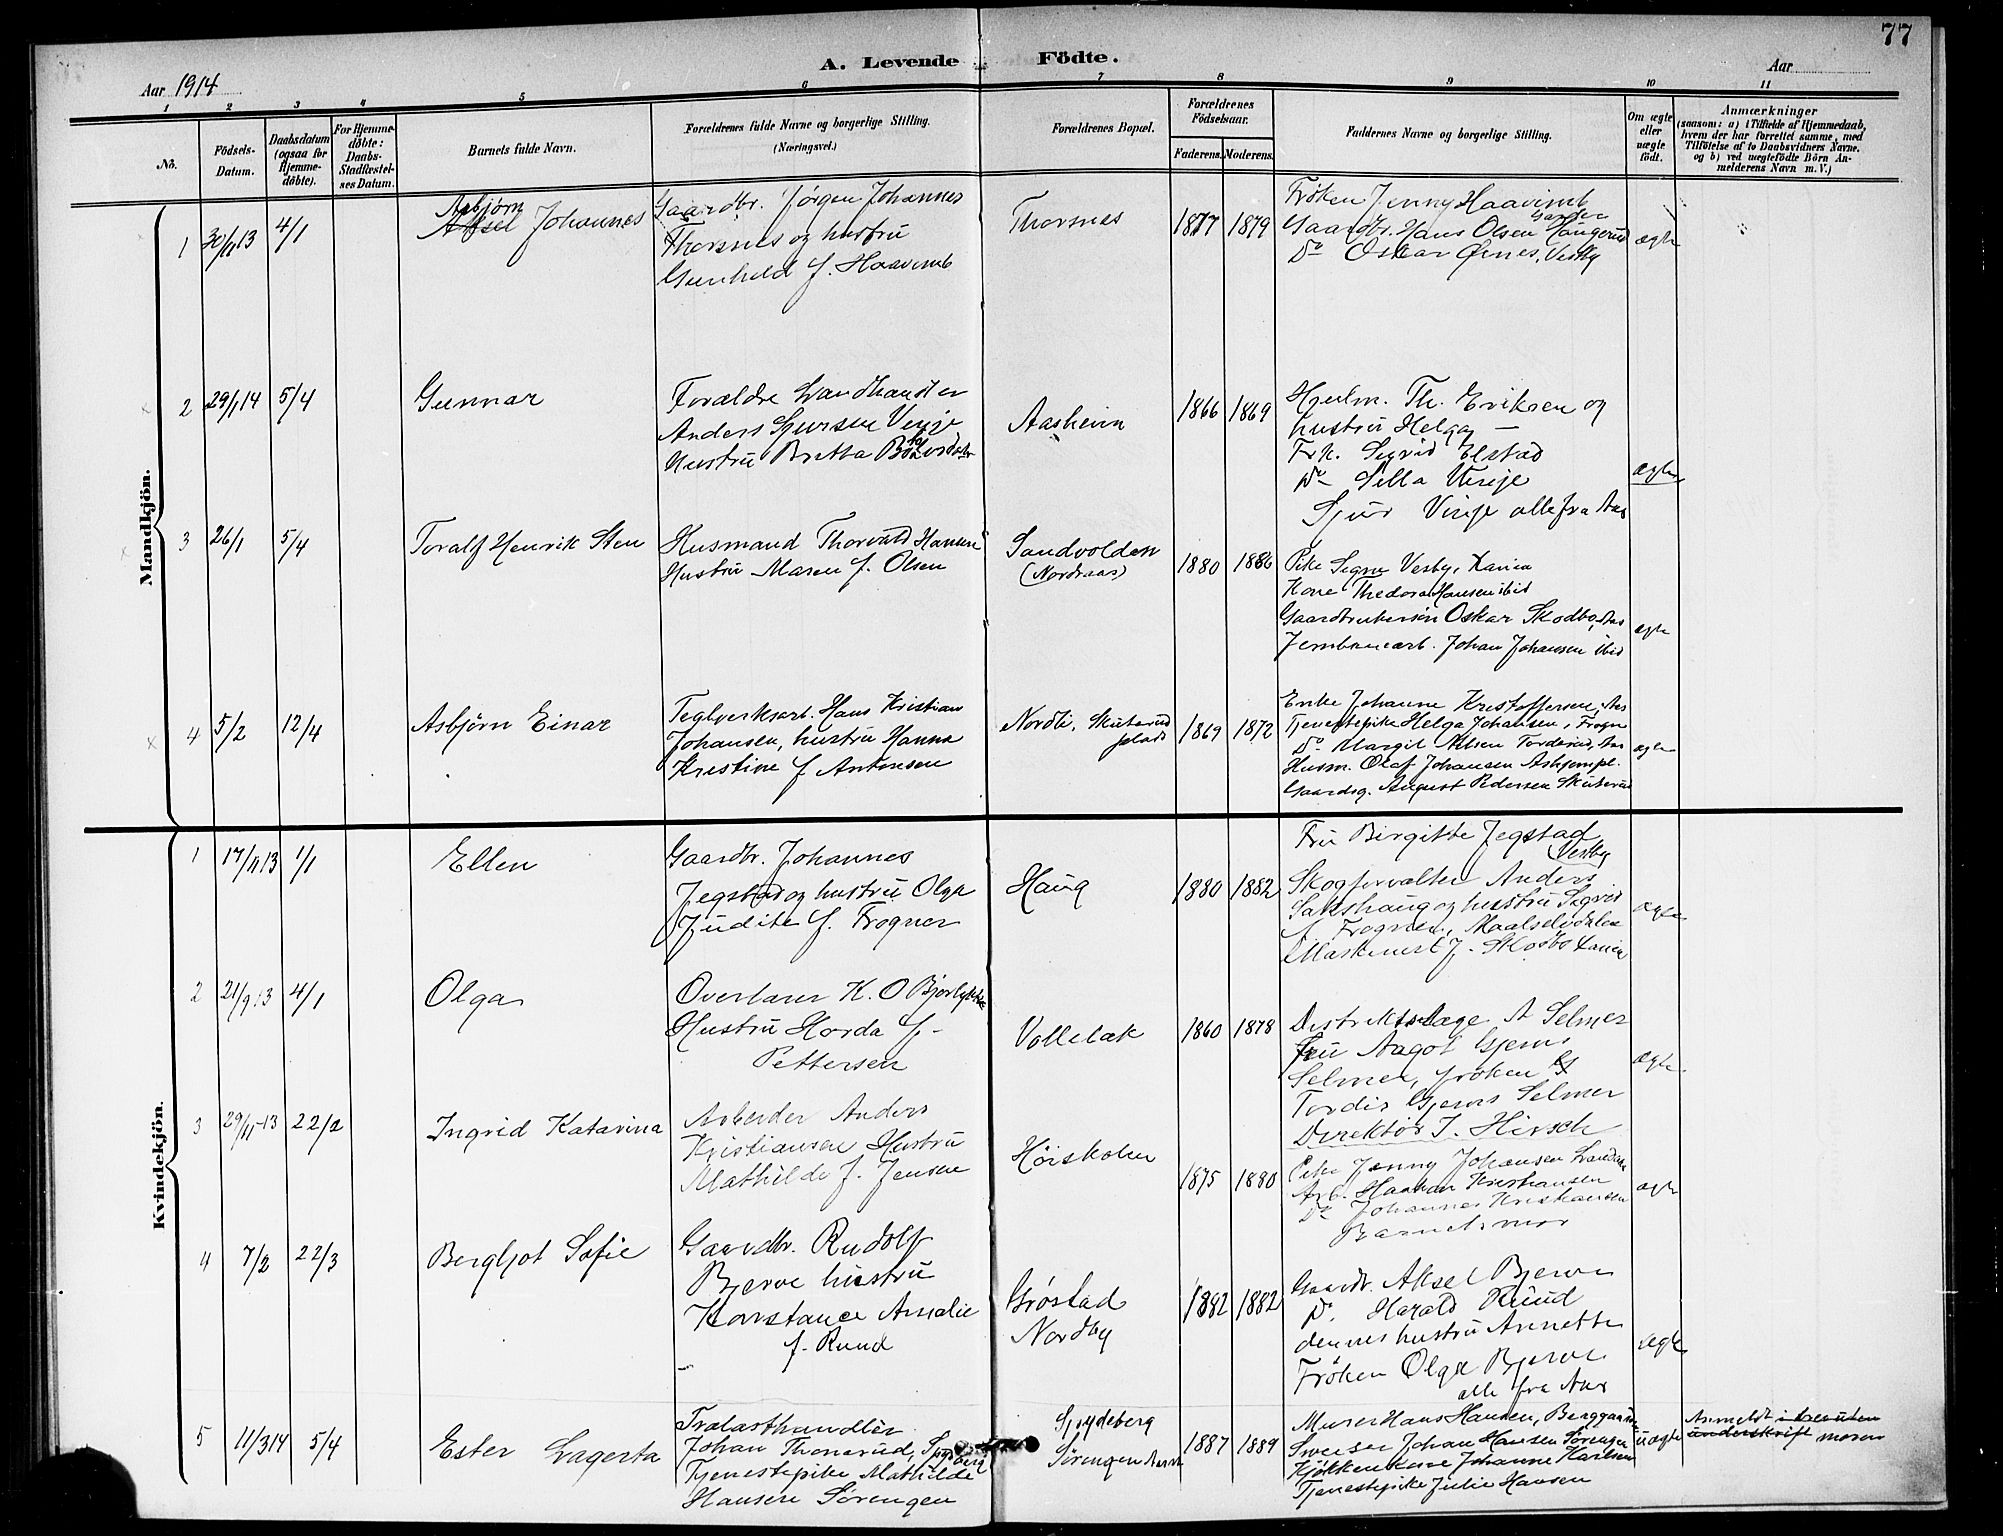 77
A. Levende Födte.
Aar 1914
Aar
1 2 3 4 5 6 7 8 9 10 11
Nö.
Födsels-Datum.
Daabsdatum (ogsaa for Hjemme-döbte).
For Hjemme-döbte: Daabs-Stadfæstel-ses Datum.
Barnets fulde Navn.
Forældrenes fulde Navne og borgerlige Stilling.
(Næringsvei.)
Forældrenes Bopæl.
Forældrenes Födselsaar.
Faderens. Moderens.
Faddernes Navne og borgerlige Stilling.
Om ægte eller uægte födt.
Anmærkninger
(saasom: a) i Tilfælde af Hjemmedaab,
hvem der har forrettet samme, med
Tilföielse af to Daabsvidners Navne.
og b) ved uægtefödte Börn An-
melderens Navn m. V.)
Mandkjön.
1 30/11 13 4/1
Asbjørn
Aksel Johannes
Gaardbr. Jørgen Johannes
Thorsnes og hustru
Gunhild f. Haavimb
Thorsnes
1877 1879
Frøken Jenny Haavimb
Gaardbr. Hans Olsen Haugerud
Do Oskar Øines, Vestby
ægte
2 29/1 14 5/4
Gunnar
Forældre Landhandler
Anders Sjursen Vinje
Hustru Britta
Aasheim
1866 1869
Hjulm. Th. Eriksen og
hustru Helga —
Frk. Sigrid Elstad
Do Silla Vinje
Sjur Vinje alle fra Aas
ægte
3 26/1 5/4
Toralf Henrik Sten
Husmand Thorvald Hansen
Hustru Maren f. Olsen
Sandvolden
(Nordaas)
1880 1886
Pike Signe Vesby, Kanin
Kone Thedora Hansen ibid
Gaardbrukersøn Oskar Skodbo, Aas
Jernbanearb. Johan Johansen ibid
ægte
4 5/2 12/4
Asbjörn Einar
Teglverksarb. Hans Kristian
Johansen, hustru Hanna
Kristine f Antonsen
Nordli, Skuterud
plads
1869 1872
Enke Johanne Kristoffersen, Aas
Tjenestepike Helga Johansen, Frogn
Do Margit Nilsen Torderud, Aas
Husm. Olaf Johansen Askjempl.
Gaardsg. August Pedersen Skuterud
ægte
Kvindekjön.
1 17/11 13 1/1
Ellen
Gaardbr. Johannes
Jegstad og hustru Olga
Judite f. Frogner
Haug
1880 1882
Fru Birgitte Jegstad
Vestby
Skogforvalter Anders
Sakshaug og hustru Sigrid
f. Frogner, Maalselvdalen
Maskinist J. Skodbo Kanin
ægte
2 21/9 13 4/1
Olga
Overlærer K. O Bjørlykke
Hustru Horda f.
Pettersen
Vollebæk
1860 1878
Distriktslæge A Selmer
Fru Aagot Gjems
Selmer, frøken
Tordis Gjems Selmer
Direktör J. Hirsch
ægte
3 29/11-13 22/2
Ingrid Katarina
Arbeider Anders
Kristiansen Hustru
Mathilde f. Jensen
Høiskolen
1875 1880
Pike Jenny Johansen
Arb. Haakon Kristiansen
Do Johannes Kristiansen
Barnets mor
ægte
4 7/2 22/3
Bergljot Sofie
Gaardbr. Rudolf
Bjerve hustru
Konstance Amalie
f. Ruud
Grøstad
Nordby
1882 1882
Gaardbr. Aksel Bjerve
Do. Harald Ruud
dennes hustru Annette
Frøken Olga Bjerve
alle fra Aas
ægte
5 11/3 14 5/4
Ester Lagerta
Trælasthandler
Johan Thonerud, Spydeberg
Tjenestepike Mathilde
Hansen Sørengen
Spydeberg
Sørengen
1887 1889
Murer Hans Hansen,
Sveiser Johan Hansen Sørengen
Kjøkkenkone Johanne Karlsen
Tjenestepike Julie Hansen
uægte
Anmeldt
underskrift moren